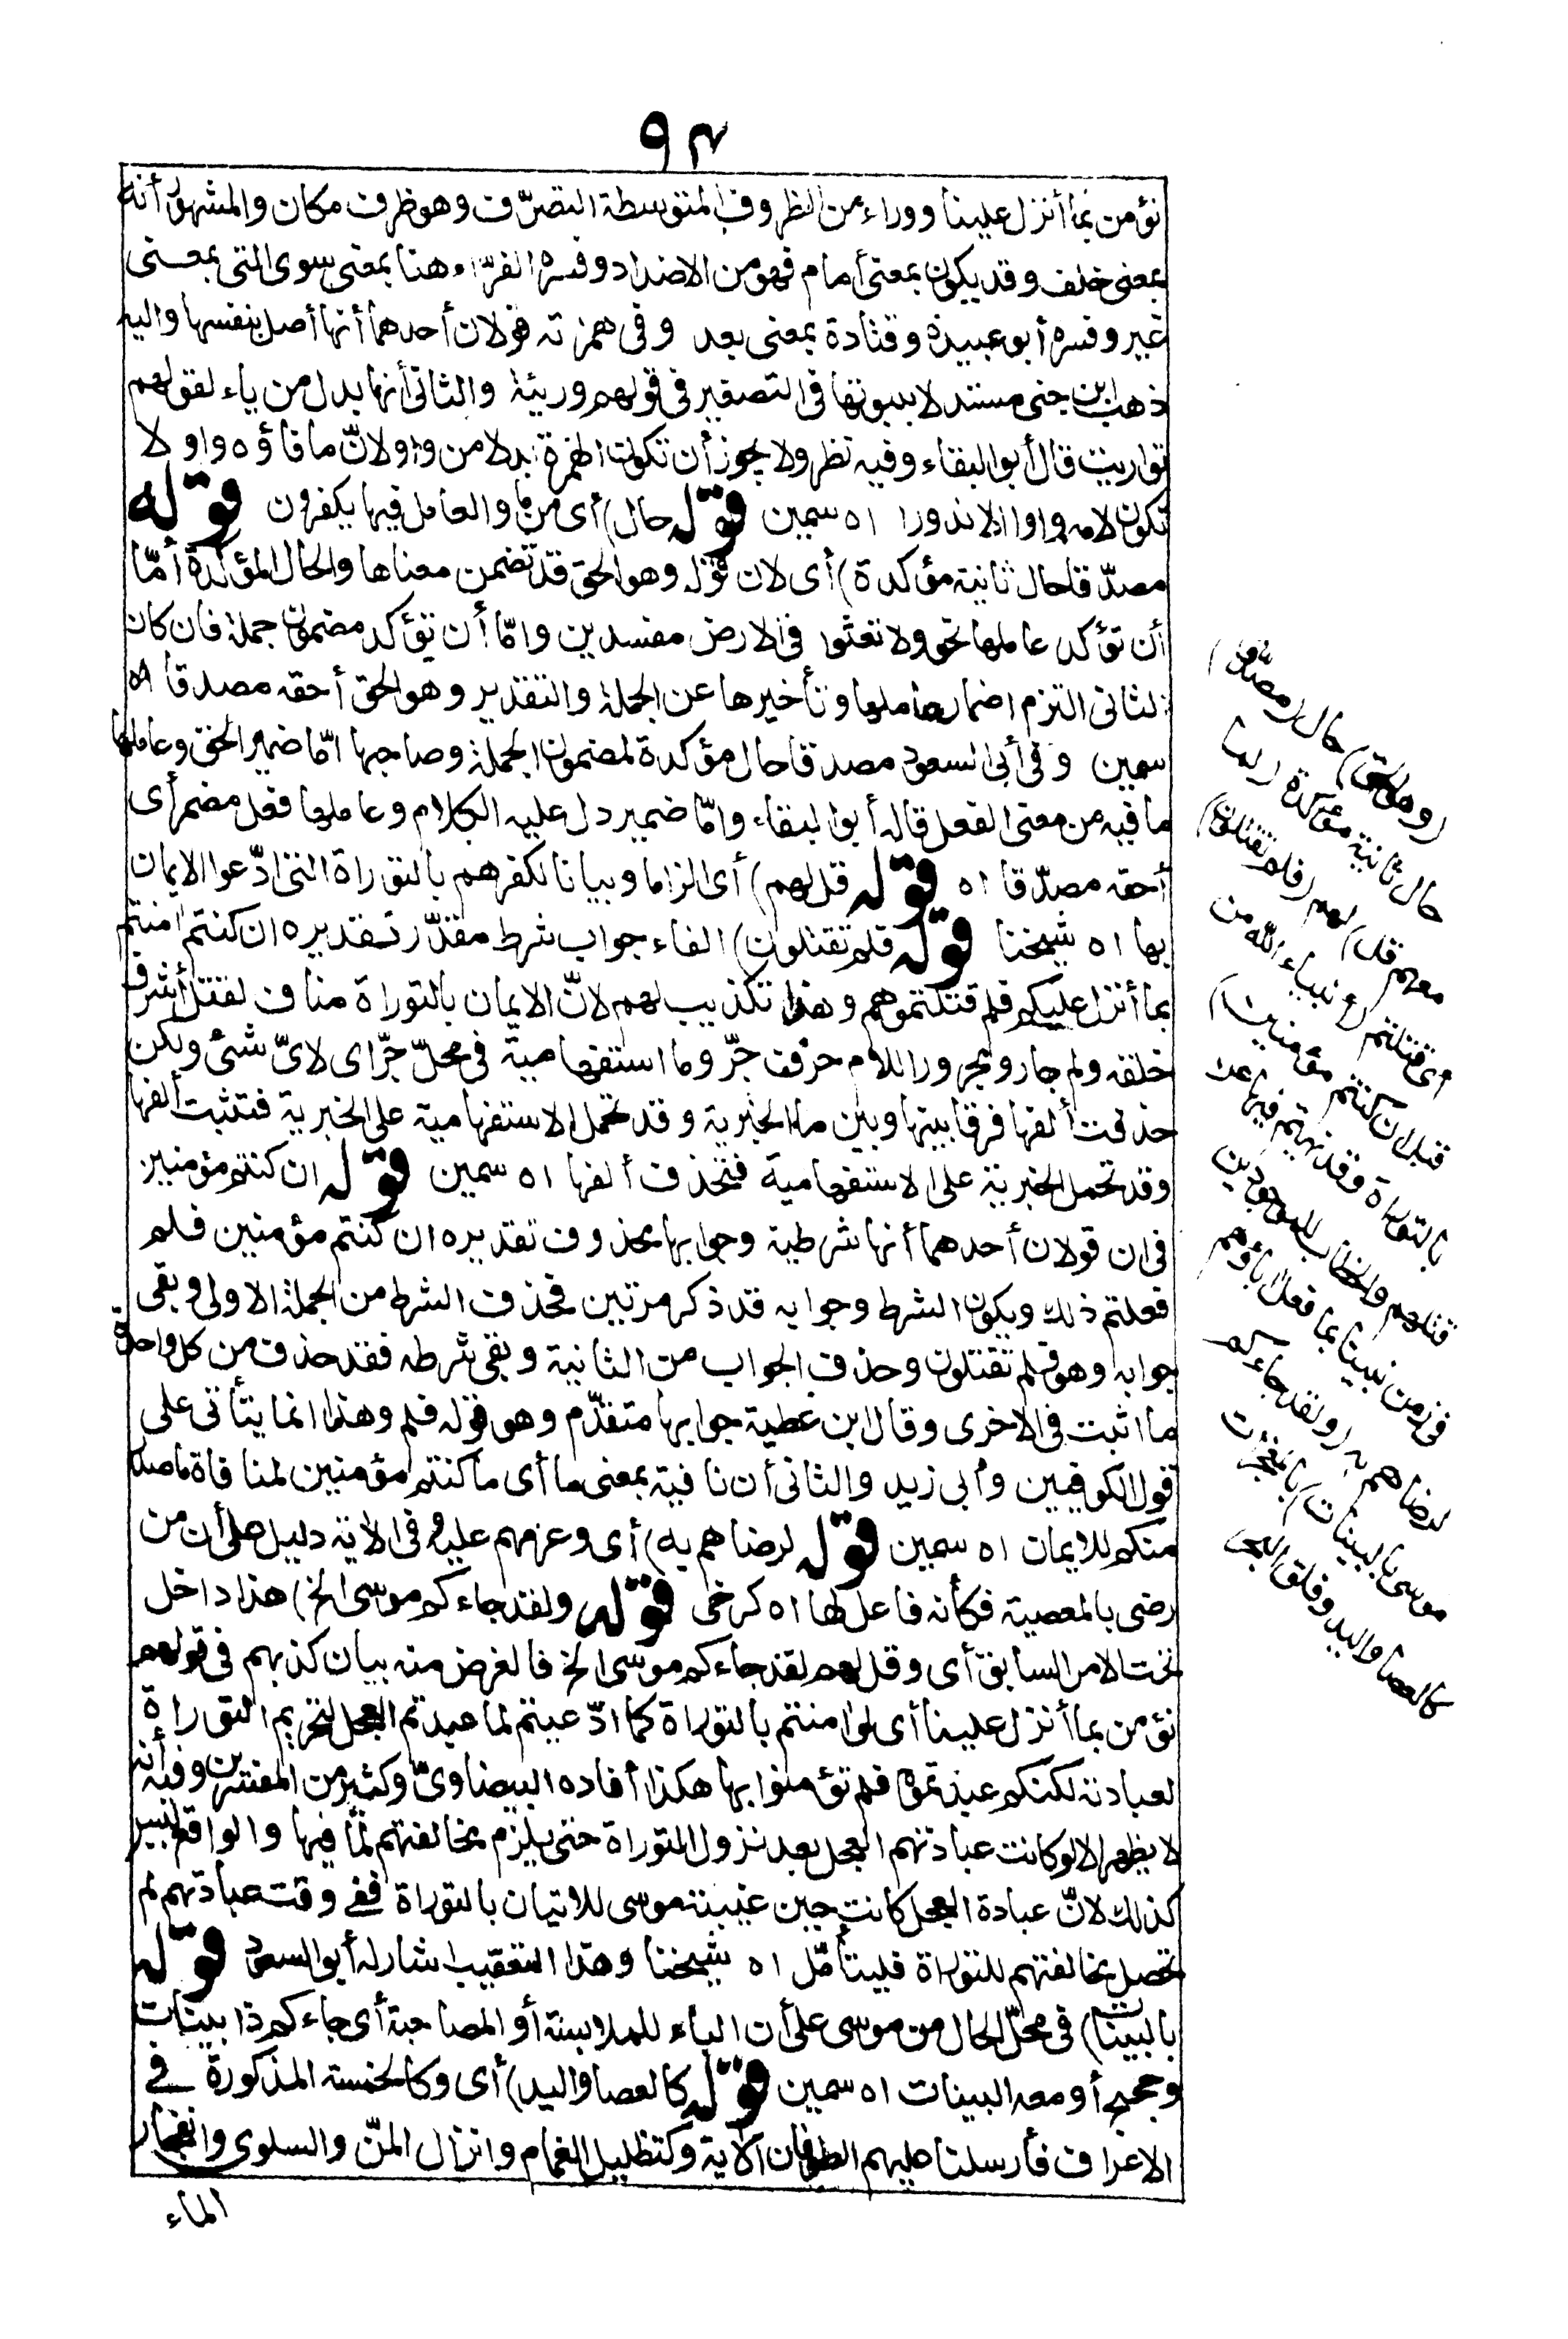 ٩٣
نؤمن بما أنزل علينا ووراء من الظروف المتوسطة التصرّف وهو ظرف مكان والمشهور أنه
بمعنى خلف وقد يكون بمعنى أمام فهو من الاضداد وفسره الفرّاء هنا بمعنى سوى التى بمعنى
غير وفسره أبو عبيدة وقتادة بمعنى بعد وفى همزته قولان أحدهما أنها أصل بنفسها واليه
ذهب ابن جنى مستدلا بثبوتها فى التصغير فى قولهم وريئة والثانى أنها بدل من ياء لقولهم
تواريت قال أبو البقاء وفيه نظر ولا يجوز أن تكون الهمزة بدلا من واو لانّ ما فاؤه واو لا
تكون لامه واوا الا ندورا اه سمين قوله حال) أى من ما والعامل فيها يكفرون قوله
مصدّقا حال ثانية مؤكدة) أى لان قوله وهو الحق قد تضمن معناها والحال المؤكدة أمّا
أن تؤكد عاملها نحو ولا تعثوا فى الارض مفسدين وامّا أن تؤكد مضمون جملة فان كان
الثانى التزم اضمار عاملها وتأخيرها عن الجملة والتقدير وهو الحق أحقه مصدقا اه
سمين وفى أبى السعود مصدقا حال مؤكدة لمضمون الجملة وصاحبها امّا ضمير الحق وعاملها
ما فيه من معنى الفعل قاله أبو البقاء وامّا ضمير دل عليه الكلام وعاملها فعل مضمر أى
أحقه مصدّقا اه قوله قل لهم) أى الزاما وبيانا لكفرهم بالتوراة التى ادّعوا الايمان
بها اه شيخنا قوله فلم تقتلون) الفاء جواب شرط مقدّر تقديره ان كنتم امنتم
بما أنزل عليكم فلم قتلتموهم وهذا تكذيب لهم لانّ الايمان بالتوراة مناف لقتل أشرف
خلقه ولم جار ومجرور اللام حرف جرّ وما استفهامية فى محلّ جرّ اى لاىّ شئ ولكن
حذفت ألفها فرقا بينها وبين ما الخبرية وقد تحمل الاستفهامية على الخبرية فتثبت ألفها
وقد تحمل الخبرية على الاستفهامية فتحذف ألفها اه سمين قوله ان كنتم مؤمنين
فى ان قولان أحدهما أنها شرطية وجوابها محذوف تقديره ان كنتم مؤمنين فلم
فعلتم ذلك ويكون الشرط وجوابه قد ذكر مرتين فحذف الشرط من الجملة الاولى وبقى
جوابه وهو فلم تقتلون وحذف الجواب من الثانية وبقى شرطه فقد حذف من كل واحدة
ما اثبت فى الاخرى وقال ابن عطية جوابها متقدّم وهو قوله فلم وهذا انما يتأتى على
قول الكوفيين وأبى زيد والثانى أن نافية بمعنى ما أى ما كنتم مؤمنين لمنافاة ما صدر
منكم للايمان اه سمين قوله لرضاهم به) أى وعزمهم عليه وفى الاية دليل على أن من
رضى بالمعصية فكأنه فاعل لها اه كرخى قوله ولقد جاءكم موسى الخ) هذا داخل
تحت الامر السابق أى وقل لهم لقد جاءكم موسى الخ فالغرض منه بيان كذبهم فى قولهم
نؤمن بما أنزل علينا أى لو امنتم بالتوراة كما ادّعيتم لما عبدتم العجل لتحريم التوراة
لعبادته لكنكم عبدتموه فلم تؤمنوا بها هكذا أفاده البيضاوىّ وكثير من المفسّرين وفيه أنه
لا يظهر الا لو كانت عبادتهم العجل بعد نزول التوراة حتى يلزم مخالفتهم لما فيها والواقع ليس
كذلك لانّ عبادة العجل كانت حين غيبته موسى للاتيان بالتوراة ففى وقت عبادتهم لم
تحصل مخالفتهم للتوراة فليتأمّل اه شيخنا وهذا التعقيب اشار له أبو السعود قوله
بالبينات) فى محلّ الحال من موسى على أن الباء للملابسة أو المصاحبة أى جاءكم ذا بينات
وحجج أو ومعه البينات اه سمين قوله كالعصا واليد) أى وكالخمسة المذكورة فى
الاعراف فأرسلنا عليهم الطوفان الاية وكتظليل الغمام وانزال المنّ والسلوى وانفجار
الماء
(وهو الحق) حال (مصدقا)
حال ثانية مؤكدة (لما
معهم قل) لهم (فلم تقتلون)
أى قتلتم (أنبياء الله من
قبل ان كنتم مؤمنين)
بالتوراة وقد نهيتم فيها عن
قتلهم والخطاب للموجودين
فى زمن نبينا بما فعل اباؤهم
لرضاهم به (ولقد جاءكم
موسى بالبينات) بالمعجزات
كالعصا واليد وفلق البحر